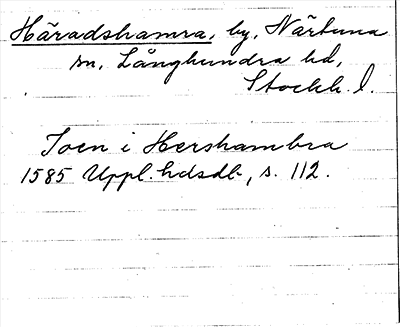 Häradshamra, by, Närtuna
sn, Långhundra hd,
Stockh. l.
Joen i Hershambra
1585 Uppl. hdsdb, s. 112.